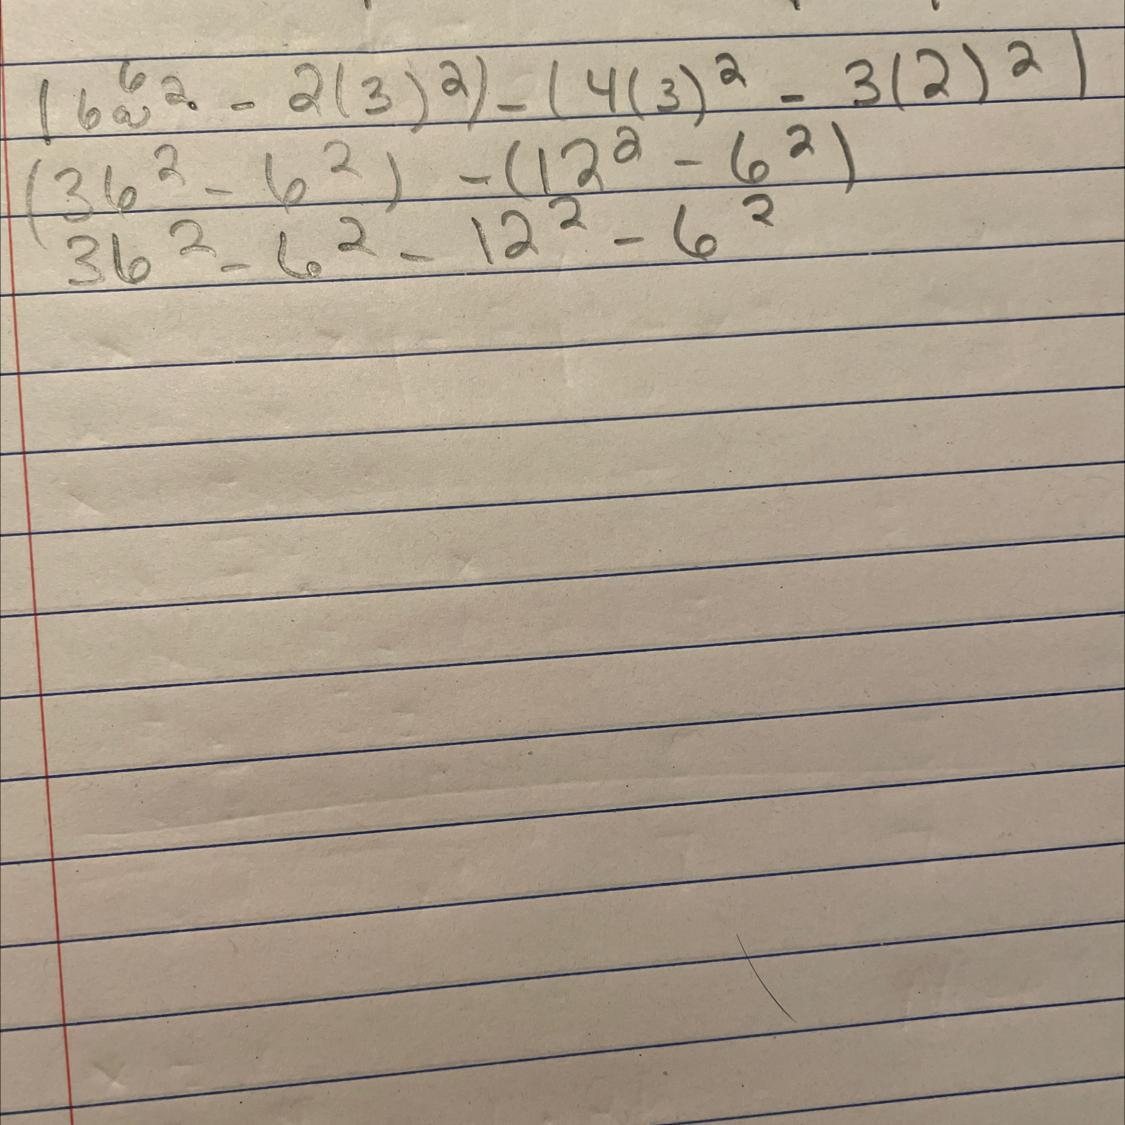 (6 2 - 2(3)²) - (4(3)² - 3(2)²)
(36² - 6²) - (12² - 6²)
36² - 6² - 12² - 6²